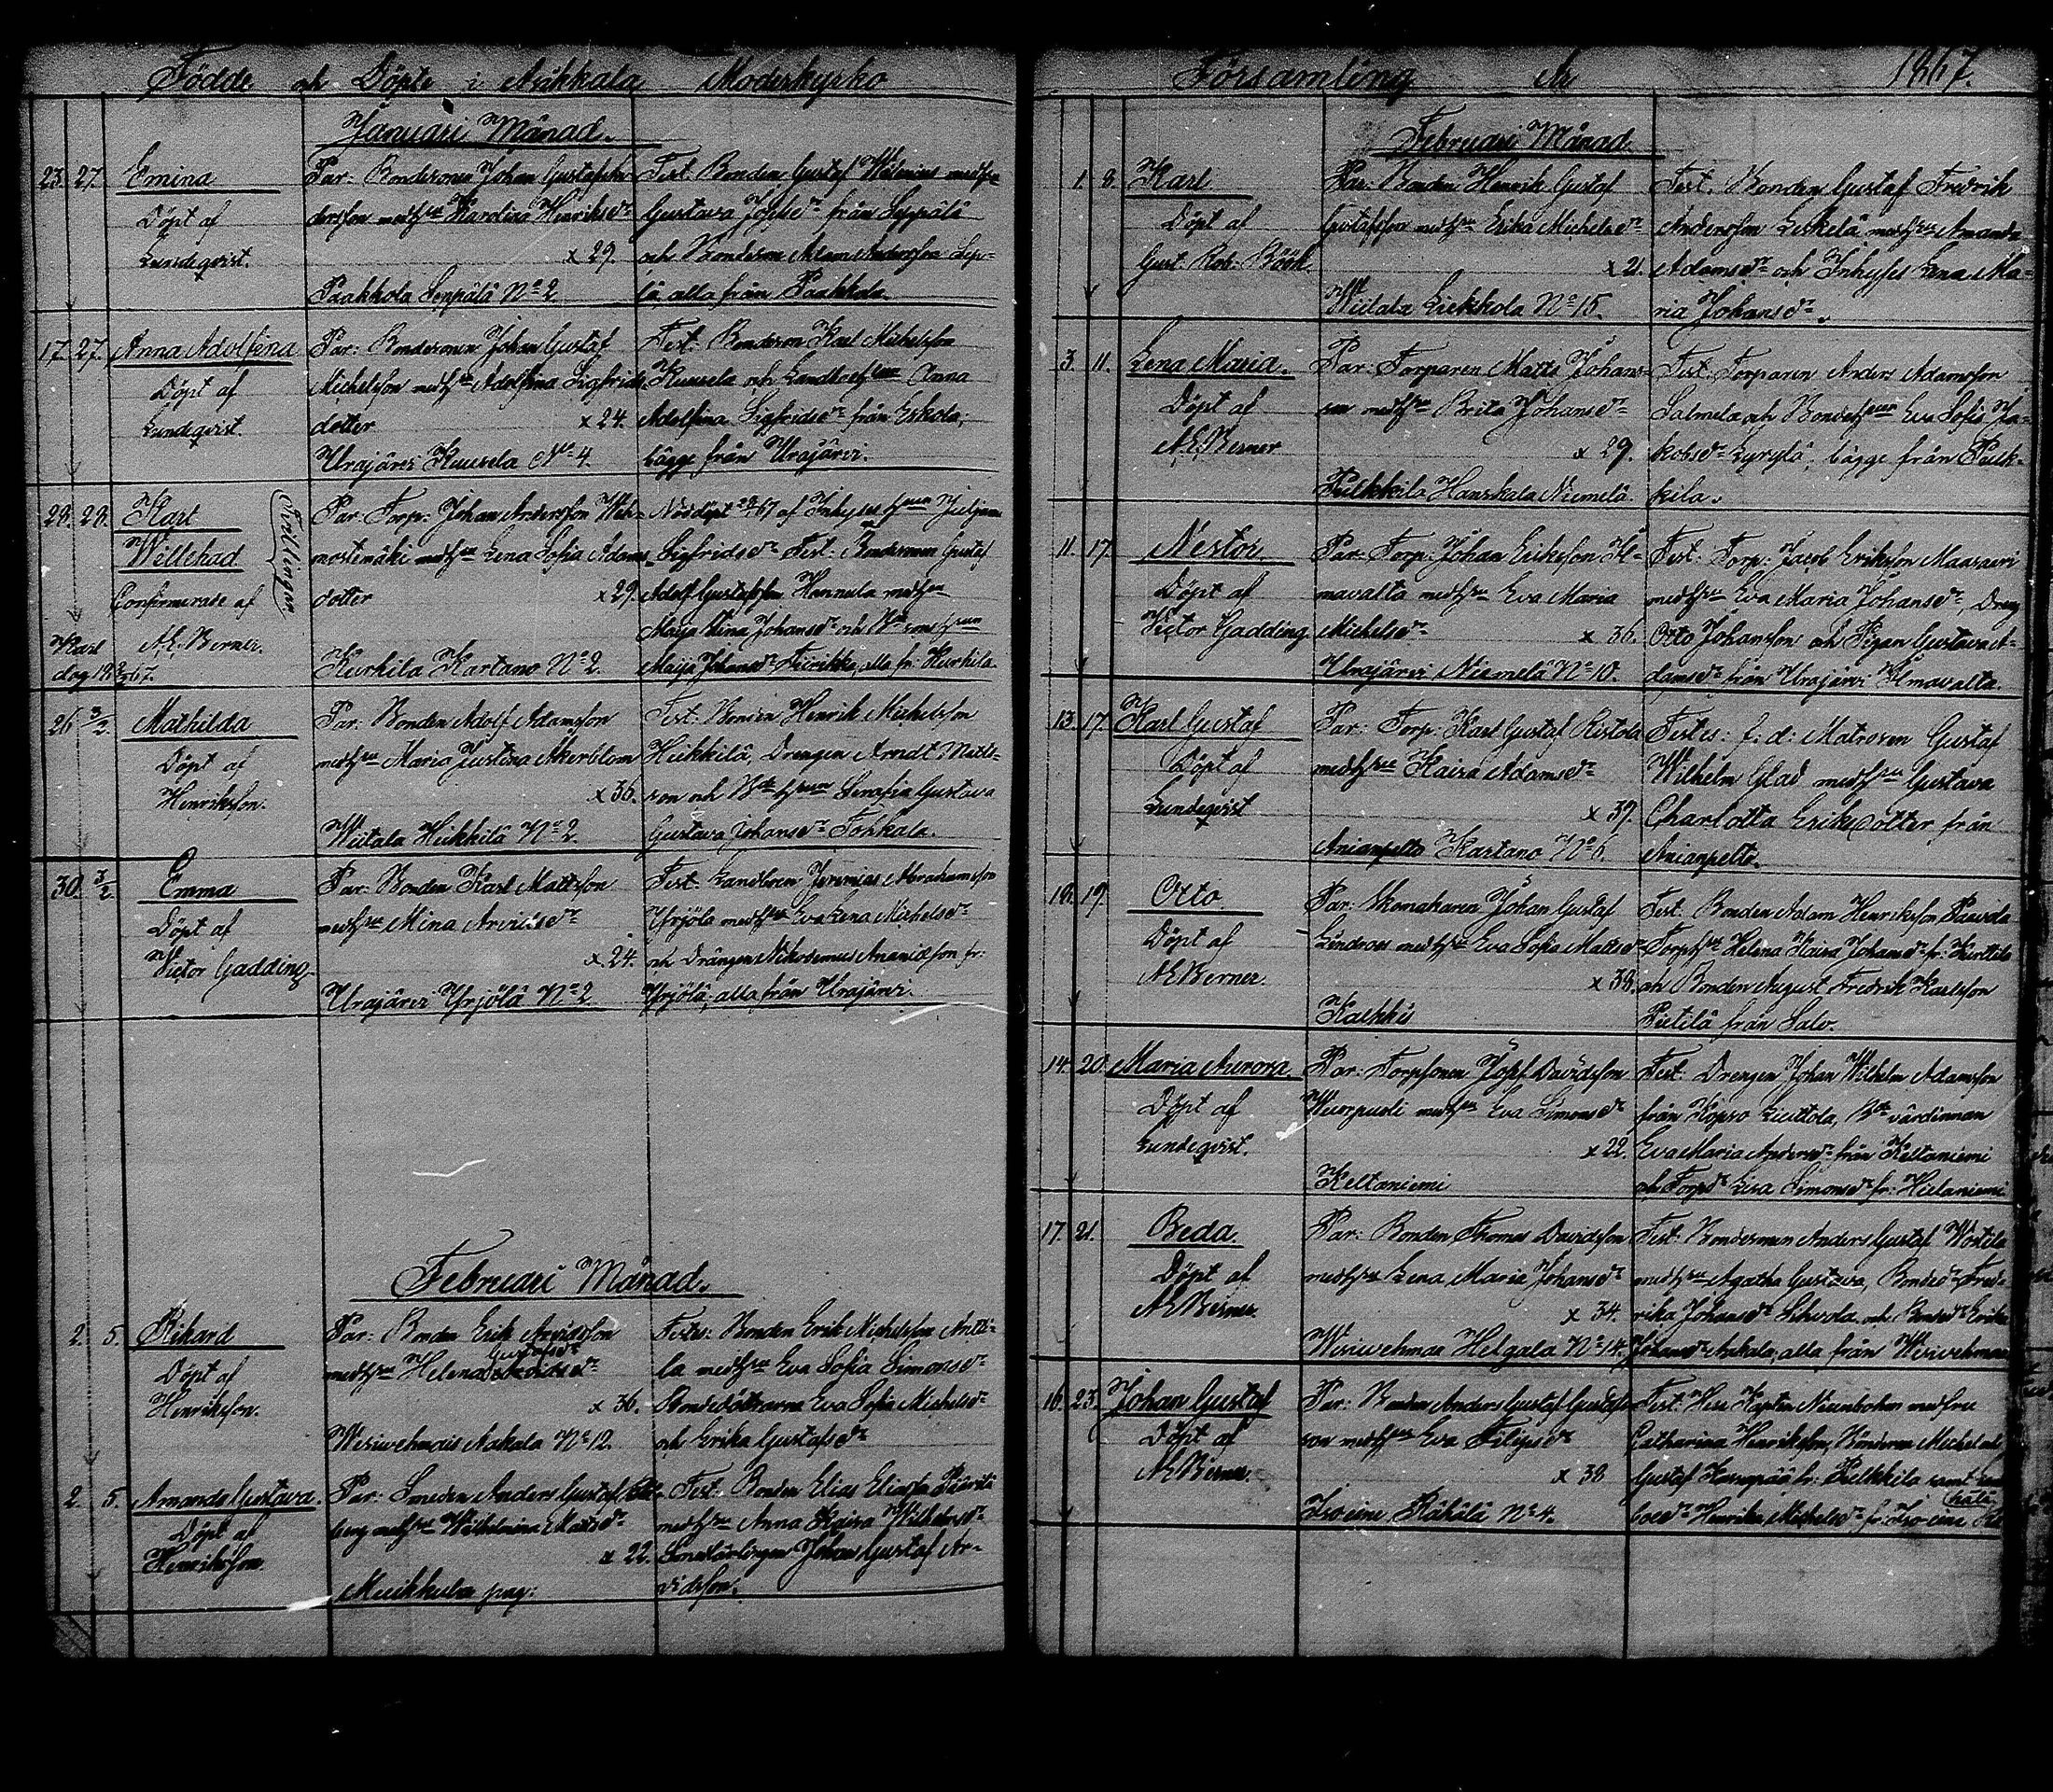 Födde och Döpte i Asikkala Moderkyrko
Januari Månad.
23. 27. Emina
Döpt af
Lundeqvist.
Par: Bondesonen Johan Gustaf
dersson medh hu Karolina Henriksdr
x 29.
Paakkola Seppälä No 2
Test. Bonden Gustaf
Gustava Josefsdr från Seppälä
och Bondeson Adam Andersson Sep-
lä alla från Paakkola.
17. 27. Anna Adolfina
Döpt af
Lundeqvist.
Par: Bondesonen Johan Gustaf
Michelsson med hu Adolfina Sigfrids
dotter x 24.
Urajärvi Kuusela No 4.
Test: Bondeson Karl Michelsson
Kuusela och Landbo Anna
Adolfina Sigfridsdr från Eskola,
bägge från Urajärvi.
28. 28. Karl
Willehad
Confirmerade af
A.E. Berner.
Tvillingar
Karl
dog
Par: Torp: Johan Andersson
mostenmäki med hu Lena Sofia Adams
dotter x 29.
Kurhila Kartano No 2.
Nöddöpt af Inhyses
Sigfridsdr Test: Bondesonen Gustaf
Adolf Gustafsson Hannula med hu
Maja Stina Johansdr och
Maija Johansdr alla fr: Kurhila.
26 3/2. Mathilda
Döpt af
Henriksson.
Par: Bonden Adolf Adamsson
med hu Maria Justina Åkerblom
x 36.
Wiitala Heikkilä No 2.
Test: Bonden Henrik Michelsson
Heikkilä, Drengen Arndt Matts-
son och Serafia Gustava
Gustava Johansdr Tohkala.
30. 3/2. Emma
Döpt af
Victor Gadding
Par: Bonden Karl Mattsson
med hu Mina Arvidsdr
x 24.
Urajärvi Yrjölä No 2
Test: Landboen Jeremias Abrahamsson
Yrjölä med hu Eva Lena Michelsdr
och Drängen Nikodemus Ananiasson fr:
Yrjölä, alla från Urajärvi.
Februari Månad.
2. 5. Rikard
Döpt af
Henriksson.
Par: Bonden Erik Arvidsson
Gustafsdr
med hu Helena Arvidsdr
x 36.
Wesivehmais Aakala No 12.
Testes: Bonden Erik Michelsson Antti-
la med hu Eva Sofia Simonsdr
Bondedöttrarna Eva Sofia Michelsdr
och Erika Gustafsdr
2. 5. Amanda Gustava.
Döpt af
Henriksson.
Par: Smeden Anders Gustaf
berg med hu Wilhelmina Mattsdr
x 22.
Muikkula
Test: Bonden Elias Eliasson
med hu Anna Kaisa Wilhelmsdr
Smedlärlingen Johan Gustaf Ar-
vidsson.
Församling År 1867.
Februari Månad
1. 8. Karl
Döpt af
Gust. Rob. Böök
Par: Bonden Henrik Gustaf
Gustafsson med hu Erika Michelsdr
x 21.
Wiitala Liekkola No 15.
Test. Bonden Gustaf Fredrik
Andersson Eskelä med hu Amanda
Adamsdr och Inhyses Lena Ma-
ria Johansdr.
3. 11. Lena Maria.
Döpt af
A.E. Berner
Par: Torparen Matts Johans-
son med hu Brita Johansdr
x 29.
Pulkkila Hanskala Niemelä.
Test: Torparen Anders Adamsson
Salmela och Bondeh Eva Sofia Ja-
kobsdr Kyrylä, bägge från Pulk-
kila.
11. 17. Nestor.
Döpt af
Victor Gadding
Par: Torp: Johan Eriksson Il-
mavalta med hu Eva Maria
Michelsdr x 36.
Urajärvi Niemelä No 10.
Test: Torp: Jacob Eriksson Maasaari
med hu Eva Maria Johansdr, Dreng
Otto Johansson och Pigan Gustava A-
damsdr från Urajärvi Ilmavalta.
13. 17. Karl Gustaf
Döpt af
Lundeqvist
Par: Torp: Karl Gustaf Ristola
med hu Kaisa Adamsdr
x 37.
Anianpelto Kartano No 6.
Testes: f: d: Matrosen Gustaf
Wilhelm Glad med hu Gustava
Charlotta Eriksdotter från
Anianpelto.
18. 19. Otto
Döpt af
A.E. Berner.
Par: Skomakaren Johan Gustaf
Lindroos med hu Eva Sofia Mattsdr
x 38.
Kalkkis
Test. Bonden Adam Henriksson
Torph Helena Kaisa Johansdr fr:
och Bonden August Fredrik Karlsson
Pietilä från Salo.
14. 20. Maria Aurora.
Döpt af
Lundeqvist.
Par: Torpsonen Josef Davidsson
Wuoripuoli med hu Eva Simonsdr
x 22.
Keltaniemi
Test: Drengen Johan Wilhelm Adamsson
från Kopso värdinnan
Eva Maria Andersdr från Keltaniemi
och Torpdr Lisa Simonsdr fr: Hietaniemi
17. 21. Beda.
Döpt af
A.E. Berner.
Par: Bonden Thomas Davidsson
med hu Lena Maria Johansdr
x 34.
Wesivehmaa Helgala No 14.
Test: Bondesonen Anders Gustaf
med hu Agatha Gustava, Bondedr Fred-
rika Johansdr och Bondedr Erika
Johansdr Aakala, alla från Wesivehmaa
16. 23. Johan Gustaf
Döpt af
A.E. Berner.
Par: Bonden Anders Gustaf Gustafs-
son med hu Eva Filipsdr
x 38
Isoeine Kähälä No 4.
Test: Herr Kapten med fru
Catharina Henriksson, Bönderna Michel och
Gustaf fr: Pulkkila samt
boedr Henrika Michelsdr fr: Isoeine
hälä